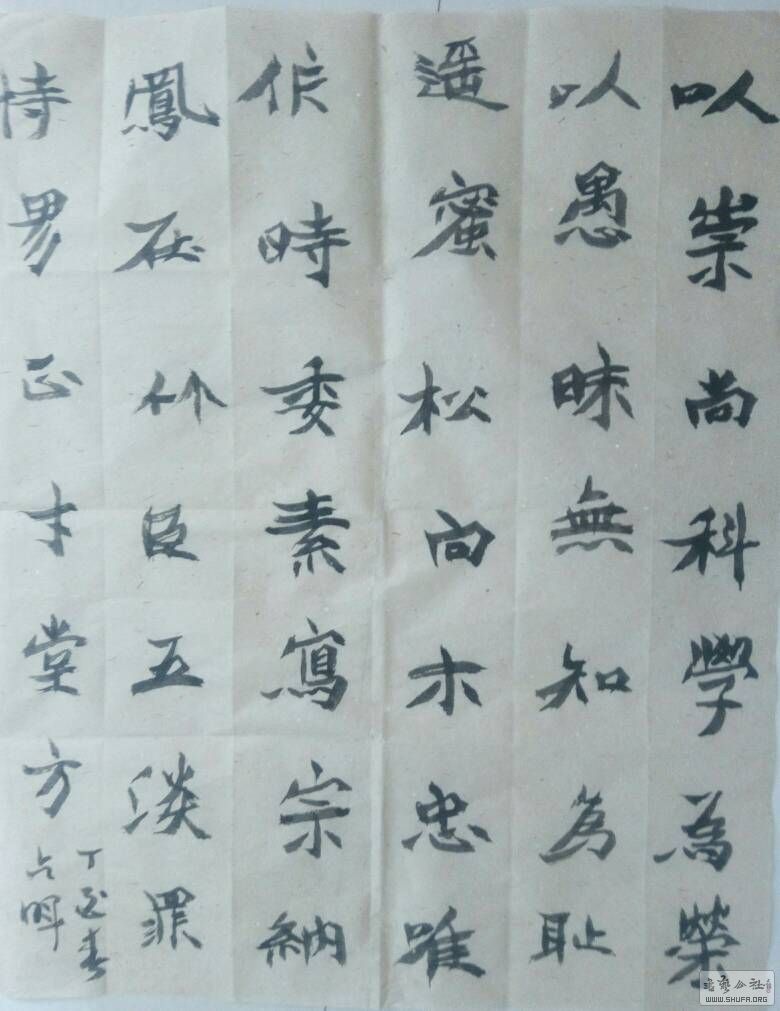 以崇尚科學為榮
以愚昧無知為耻
遥蜜松向木忠唯
作時委素寫宗納
鳳在竹臣五淡罪
恃界正才堂方
丁酉春
占明
書藝公社
WWW.SHUFA.ORG